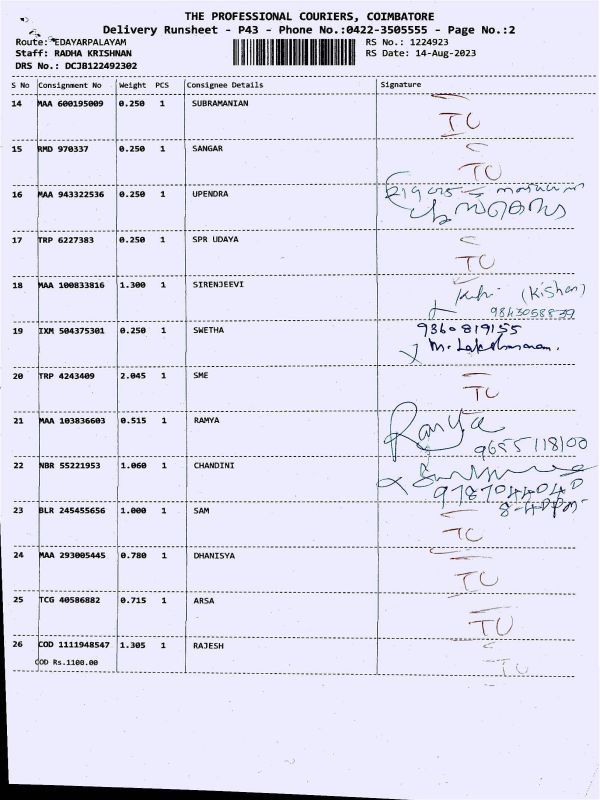 THE PROFESSIONAL COURIERS, COIMBATORE
Delivery Runsheet - P43 - Phone No.:0422-3505555 - Page No.:2
Route: EDAYARPALAYAM RS No.: 1224923
Staff: RADHA KRISHNAN RS Date: 14-Aug-2023
DRS No.: DCJB122492302
S No Consignment No Weight PCS Consignee Details Signature
14 MAA 600195009 0.250 1 SUBRAMANIAN TC
15 RMD 970337 0.250 1 SANGAR TC
16 MAA 943322536 0.250 1 UPENDRA
17 TRP 6227383 0.250 1 SPR UDAYA TC
18 MAA 100833816 1.300 1 SIRENJEEVI (Kishor)
9843058839
19 IXM 504375301 0.250 1 SWETHA 9360819155
M. Lakshmanan.
20 TRP 4243409 2.045 1 SME TC
21 MAA 103836603 0.515 1 RAMYA Ramya
9655118100
22 NBR 55221953 1.060 1 CHANDINI
9787044040
8-40pm
23 BLR 245455656 1.000 1 SAM TC
24 MAA 293005445 0.780 1 DHANISYA TC
25 TCG 40586882 0.715 1 ARSA TU
26 COD 1111948547 1.305 1 RAJESH TU
COD Rs.1100.00